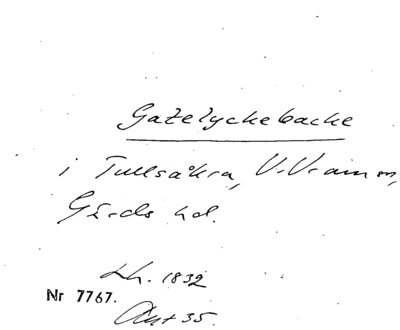 Gatelyckebacke
i Tullsåkra, V. Vram sn,
Gärds hd.
Lh. 1832
Nr 7767.
Akt 35.